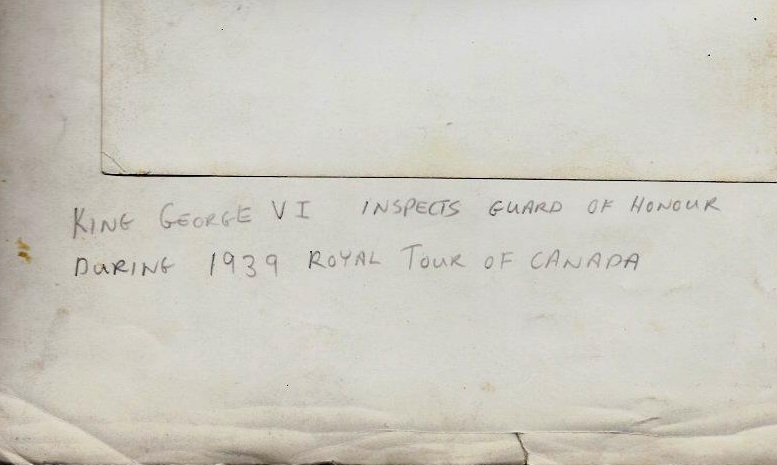 KING GEORGE VI INSPECTS GUARD OF HONOUR
DURING 1939 ROYAL TOUR OF CANADA